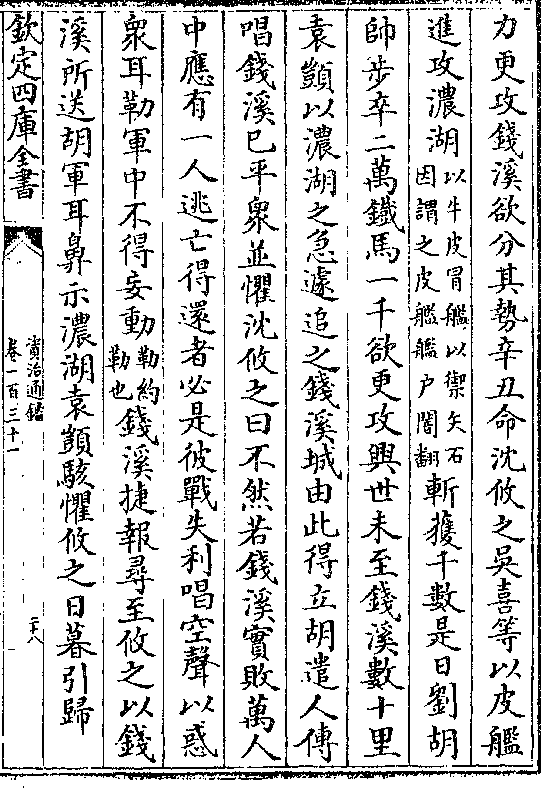 力更攻錢溪欲分其勢辛丑命沈攸之吳喜等以皮艦
進攻濃湖以牛皮冒艦以禦矢石因謂之皮艦艦户闔翻斬獲千數是日劉胡
帥步卒二萬鐵馬一千欲更攻興世未至錢溪數十里
袁顗以濃湖之急遽追之錢溪城由此得立胡遣人傳
唱錢溪已平衆並懼沈攸之曰不然若錢溪實敗萬人
中應有一人逃亡得還者必是彼戰失利唱空聲以惑
衆耳勒軍中不得妄動勒約勒也錢溪捷報尋至攸之以錢
溪所送胡軍耳鼻示濃湖袁顗駭懼攸之日暮引歸
欽定四庫全書
資治通鑑
卷一百三十一
二十八